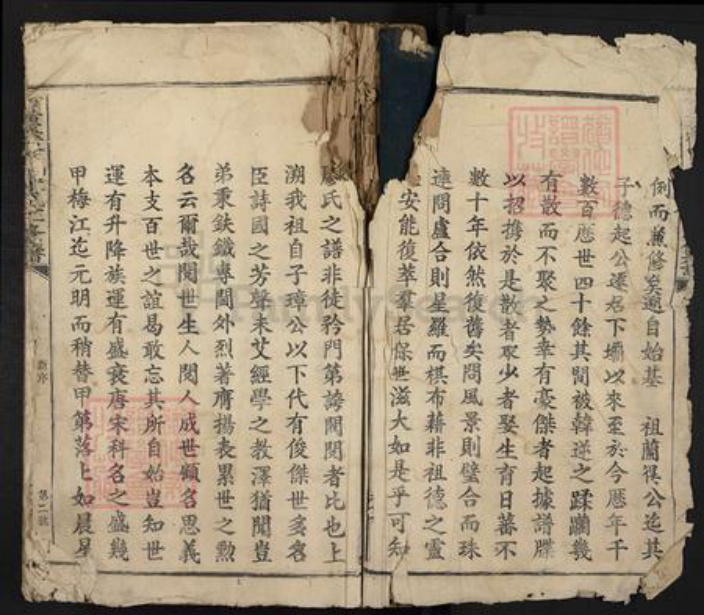 例而兼修矣遡自始基 祖蘭徵公迄其
子德起公遷居下壩以來至於今曆年千
數百歷世四十餘其間被韓逆之蹂躪幾
有散而不聚之勢幸有豪傑者起據譜牒
以招攜於是散者聚少者娶生育日蕃不
數十年依然復舊矣問風景則璧合而珠
連問廬合則星羅而棋布藉非祖德之靈
安能復萃羣居保世滋大如是乎可知
廖氏之譜非徒矜門第誇閥閱者比也上
溯我祖自子璋公以下代有俊傑世多名
臣詩國之芳聲未艾經學之教澤猶聞豈
弟秉鈇鐵專閫外烈著膺揚表累世之勲
名云爾哉閥世生人閱人成世顧名思義
本支百世之誼曷敢忘其所自始豈知世
運有升降族運有盛衰唐宋科名之盛幾
甲梅江迄元明而稍替甲第落上如晨星
新序
第二號
FamilySearch